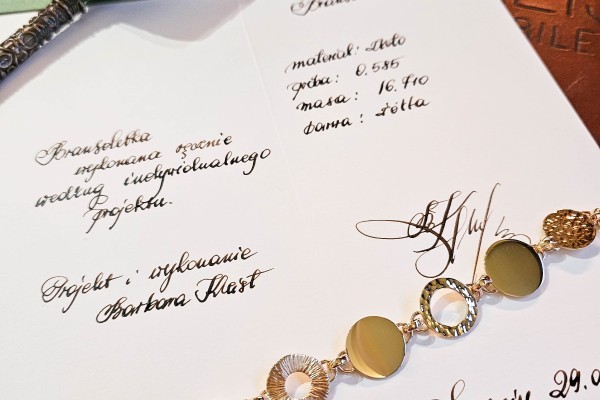 Bransoletka
wykonana ręcznie
według indywidualnego
projektu.
Projekt i wykonanie
Barbara
materiał: Złoto
próba: 0.585
masa: 16.710
barwa: żółta
29.0